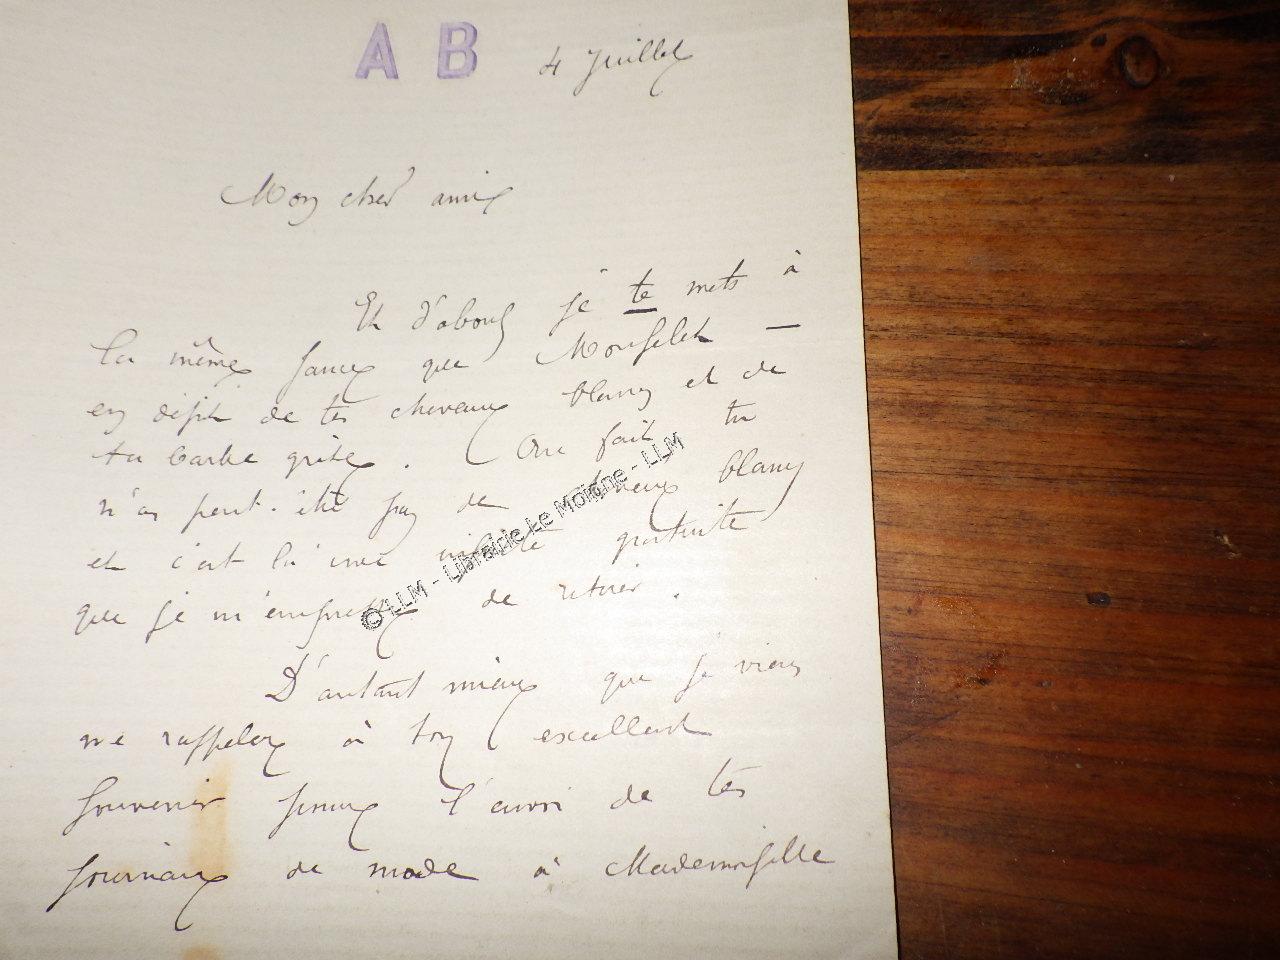 A B 4 Juillet
Mon cher ami
Et d'abord je te mets à
la même sauce que Monselet —
en dépit de tes cheveux blancs et de
ta barbe grise. Au fait tu
n'as peut-être pas de cheveux blancs
et c'est là une gratuite
que je m'empresse de retirer.
D'autant mieux que je viens
me rappeler à ton excellent
souvenir pour l'envoi de tes
journaux de mode à Mademoiselle
© LLM - Librairie Le Moigne - LLM